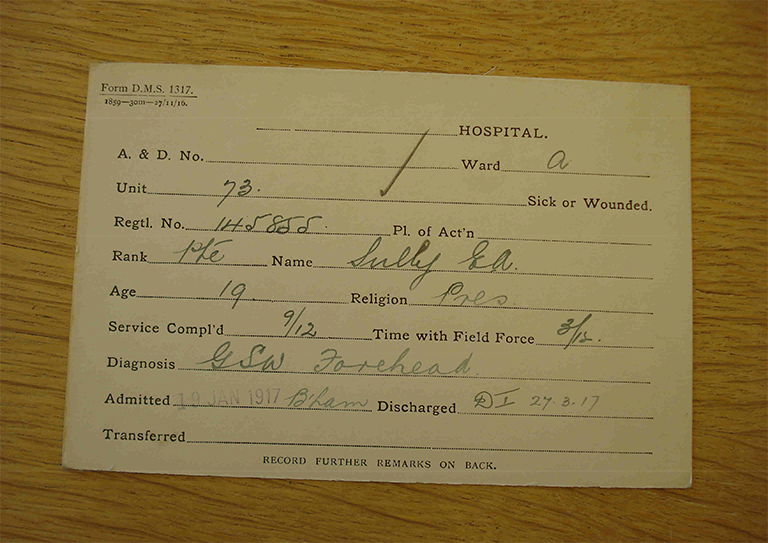 Form D.M.S. 1317.
1859—30m—27/11/16.
HOSPITAL.
A. & D. No. Ward A
Unit 73. Sick or Wounded.
Regtl. No. 145855. Pl. of Act'n
Rank Pte Name Sully EA.
Age 19. Religion Pres.
Service Compl'd 9/12 Time with Field Force 3/12.
Diagnosis GSW Forehead.
Admitted 19 JAN 1917 B'ham Discharged DI 27.3.17
Transferred
RECORD FURTHER REMARKS ON BACK.